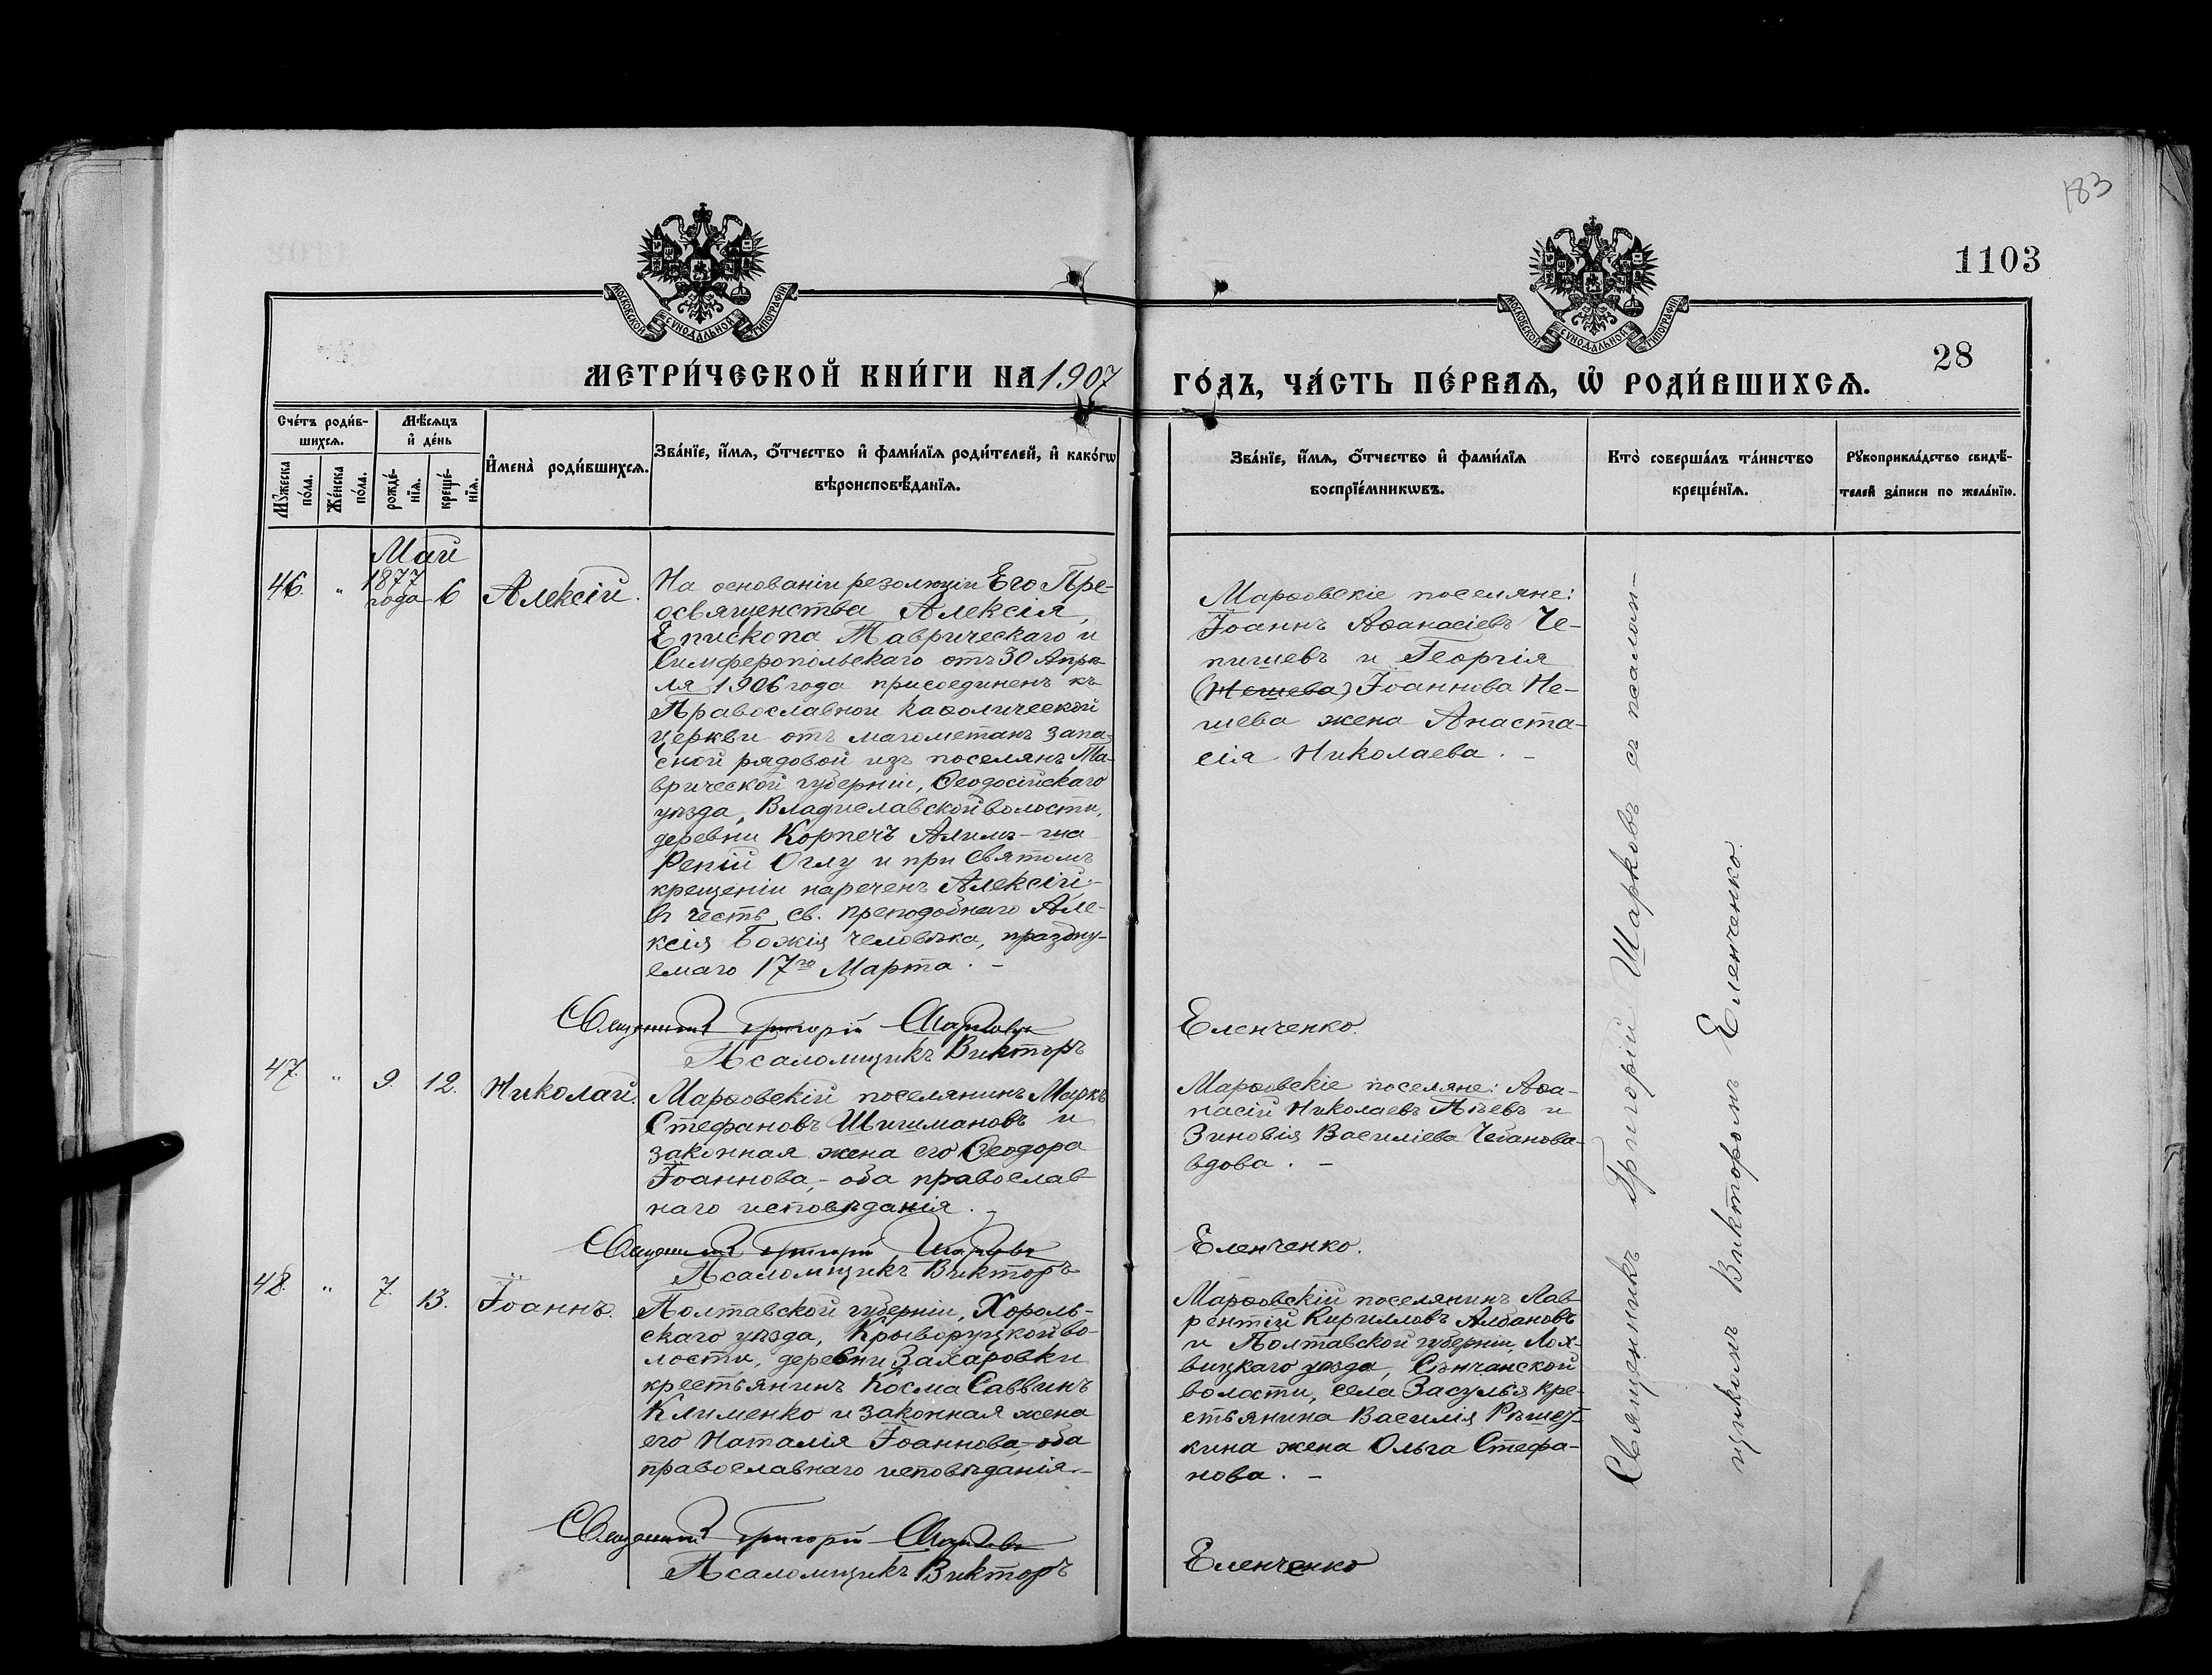 183
1103
28
МОСКОВСКОЙ СУНОДАЛЬНОЙ ТИПОГРАФІИ
МОСКОВСКОЙ СУНОДАЛЬНОЙ ТИПОГРАФІИ
МЕТРИ́ЧЕСКОЙ КНИ́ГИ НА 1907
ГО́ДЪ, ЧА́СТЬ ПЕ́РВАѦ, Ѡ РОДИ́ВШИХСѦ.
Сче́тъ роди́в-
шихсѧ.
Мꙋ́жеска
по́ла.
Же́нска
по́ла.
Мѣ́сѧцъ
и҆ де́нь
рожде́-
нїѧ.
креще́-
нїѧ.
И҆мена̀ роди́вшихсѧ.
Зва́нїе, и҆́мѧ, ѻ҆́тчество и҆ фами́лїѧ роди́телей, и҆ како́гѡ
вѣроисповѣ́данїѧ.
Зва́нїе, и҆́мѧ, ѻ҆́тчество и҆ фами́лїѧ
воспрїе́мникѡвъ.
Кто̀ соверша́лъ та́инство
креще́нїѧ.
Рꙋкоприкла́дство свидѣ́-
телей за́писи по жела́нїю.
Май
46. " 1877
года 6 Алексій.
На основаніи резолюціи Его Пре-
освященства Алексія,
Епископа Таврическаго и
Симферопольскаго отъ 30 Апрѣ-
ля 1906 года присоединенъ къ
Православной Каѳолической
Церкви отъ магометанъ запа-
сной рядовой изъ поселянъ Та-
врической губерніи, Ѳеодосійскаго
уѣзда, Владиславской волости,
деревни Корпечъ Алимъ-ша
Репій Оглу и при Святомъ
крещеніи нареченъ Алексій-
въ честь св. преподобнаго Але-
ксія Божія человѣка, праздну-
емаго 17го Марта. -
Священникъ Григорій Шарковъ
Псаломщикъ Викторъ
Марѳовскіе поселяне:
Іоаннъ Аѳанасіевъ Че-
пишевъ и Георгія
(Нешева) Іоаннова Не-
шева жена Анаста-
сія Николаева. -
Еленченко.
Священникъ Григорій Шарковъ съ псалом-
щикомъ Викторомъ Еленченко.
47. " 9. 12. Николай.
Марѳовскій поселянинъ Маркъ
Стефановъ Шишмановъ и
законная жена его Ѳеодора
Іоаннова,- оба православ-
наго исповѣданія. -
Священникъ Григорій Шарковъ
Псаломщикъ Викторъ
Марѳовскіе поселяне: Аѳа-
насій Николаевъ Пѣевъ и
Зиновія Василіева Чебанова-
вдова. -
Еленченко.
48. " 7. 13. Іоаннъ.
Полтавской губерніи, Хороль-
скаго уѣзда, Крыворуцкой во-
лости, деревни Захаровки
крестьянинъ Косма Саввинъ
Клименко и законная жена
его Наталія Іоаннова,-оба
православнаго исповѣданія.-
Священникъ Григорій Шарковъ
Псаломщикъ Викторъ
Марѳовскій поселянинъ Лав-
рентій Кирилловъ Албановъ
и Полтавской губерніи, Лох-
вицкаго уѣзда, Сѣнчанской
волости, села Засулья кре-
стьянина Василія Рѣшет-
кина жена Ольга Стефа-
нова. -
Еленченко